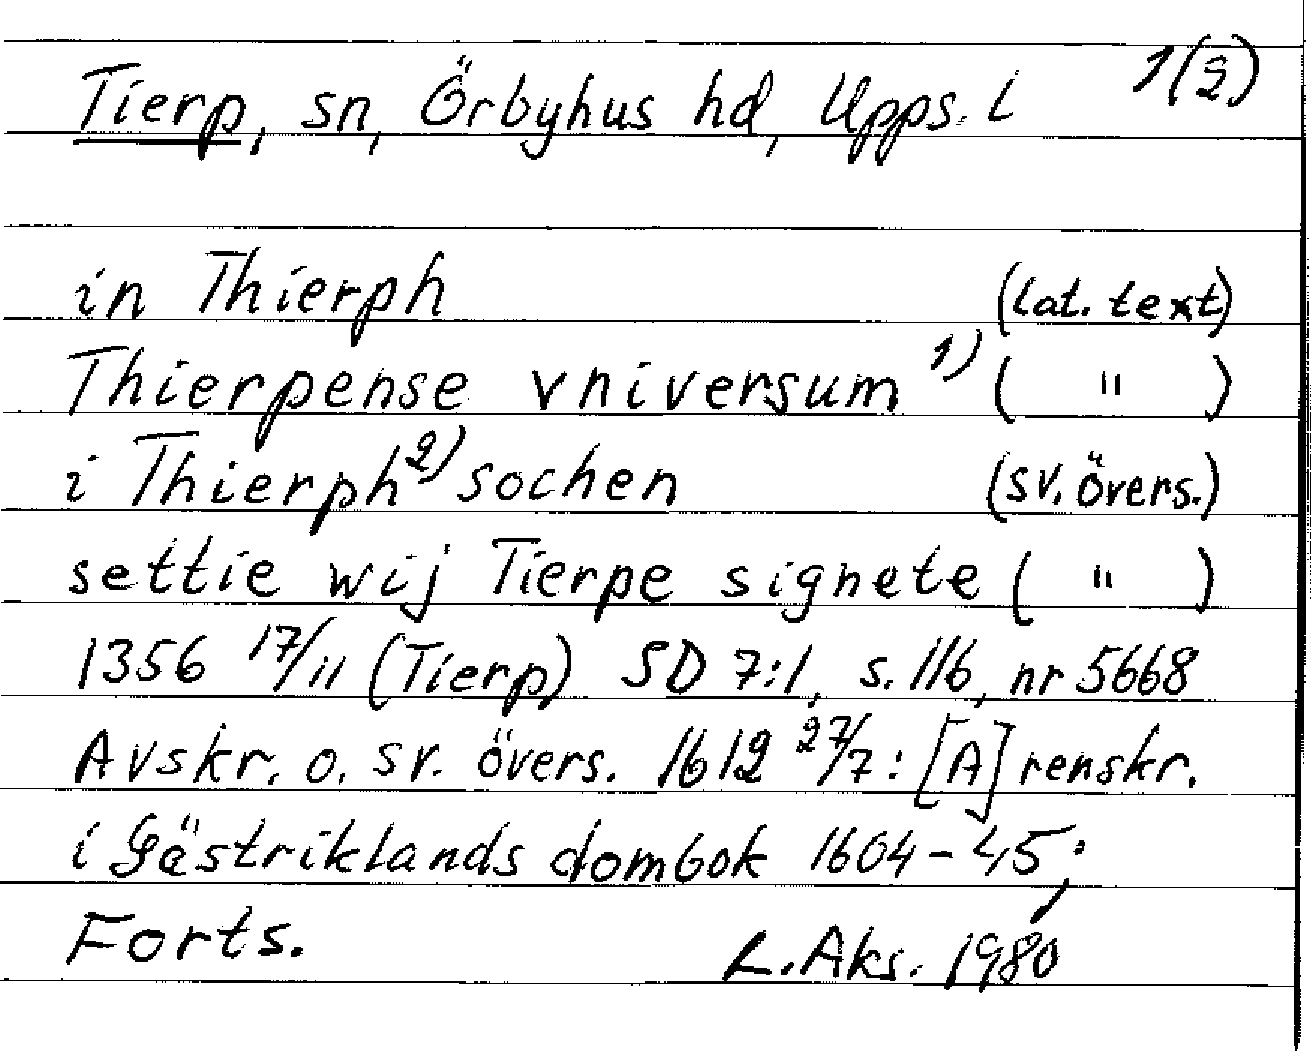 Tierp, sn, Örbyhus hd, Upps. l 1(2)
in Thierph (lat. text)
Thierpense vniversum 1) ( " )
i Thierph 2) sochen (sv. övers.)
settie wij Tierpe signete ( " )
1356 17/11 (Tierp) SD 7:1, s. 116, nr 5668
Avskr. o. sv. övers. 1612 27/7: [A] renskr.
i Gästriklands dombok 1604-45;
Forts. L. Aks. 1980